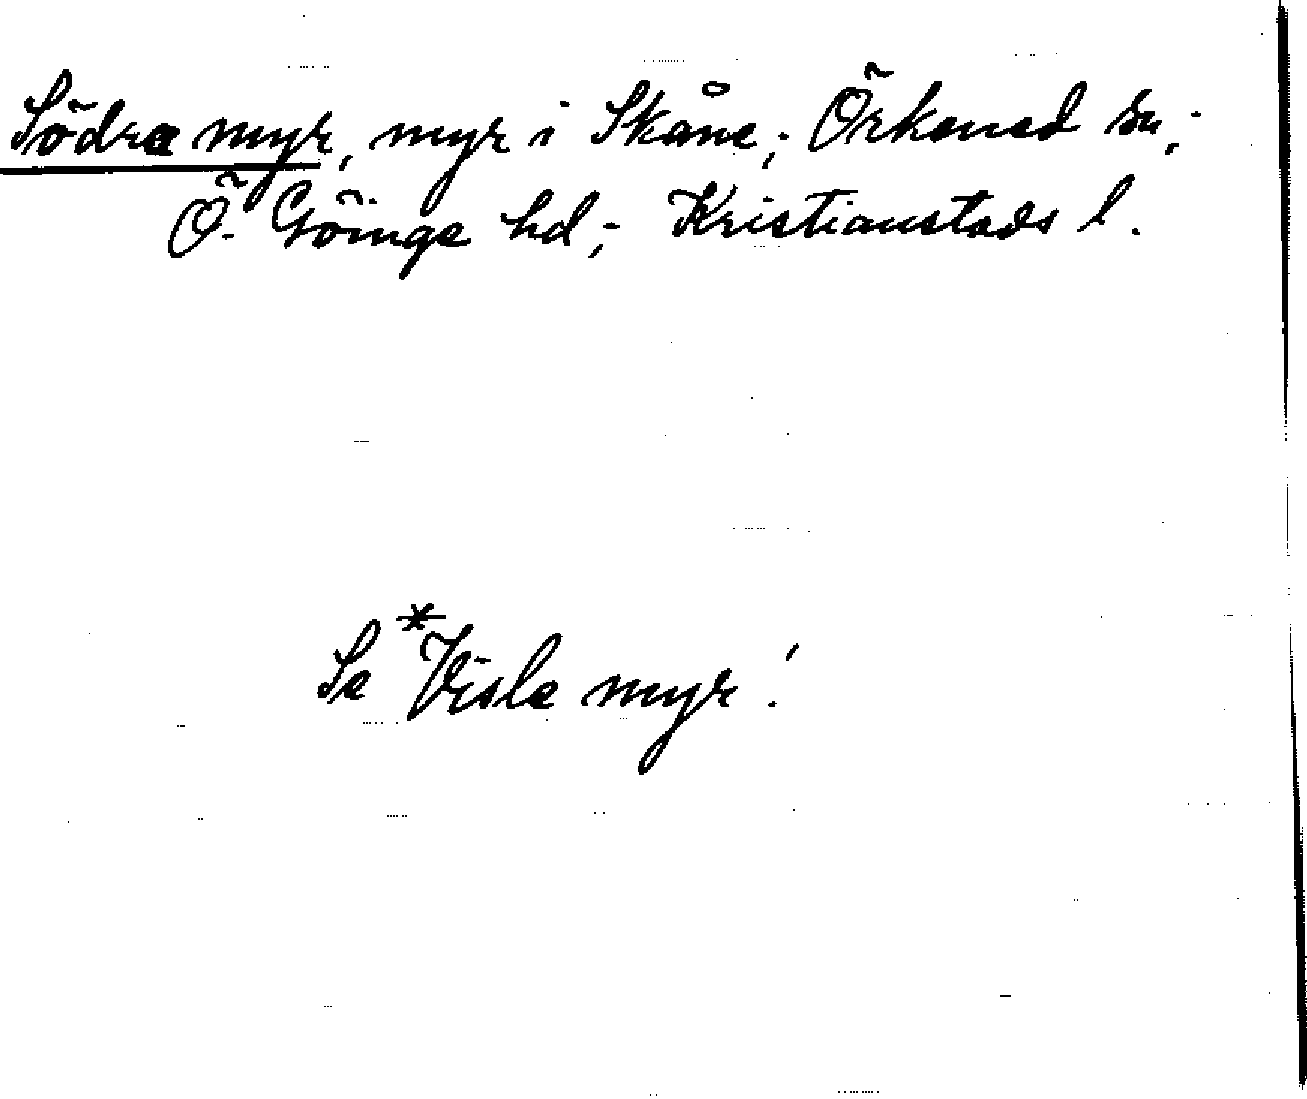 Södra myr, myr i Skåne; Örkened sn;
Ö. Göinge hd; Kristianstads l.
Se *Visle myr!